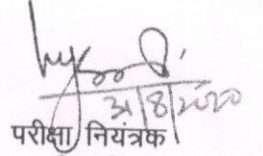 31/8/2020
परीक्षा नियंत्रक